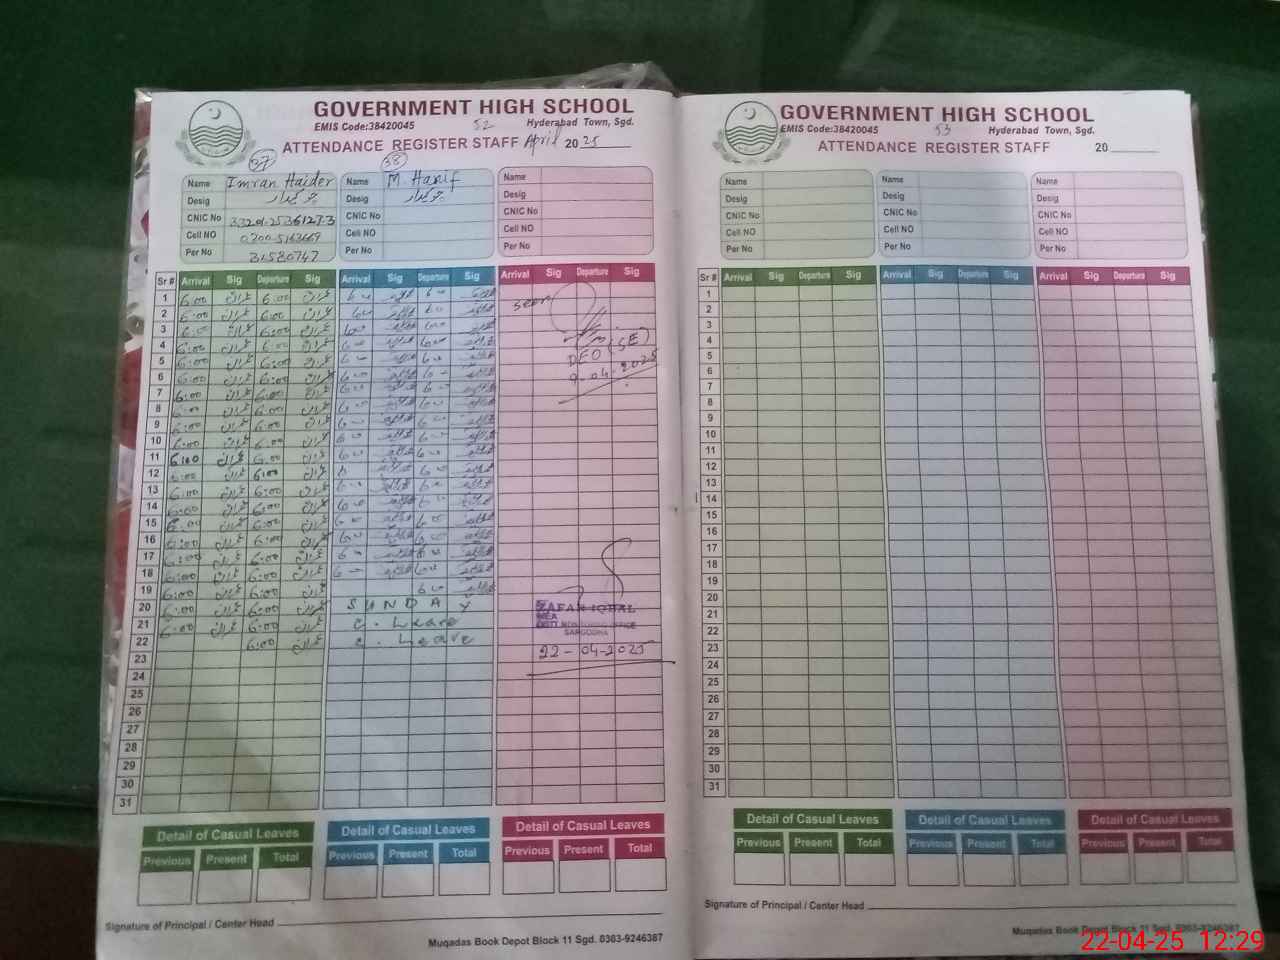 GOVERNMENT HIGH SCHOOL
EMIS Code:38420045 52 Hyderabad Town, Sgd.
ATTENDANCE REGISTER STAFF April 2025
37 38
Name Imran Haider Name M Hanif Name
Desig چوکیدار Desig چوکیدار Desig
CNIC No CNIC No CNIC No
Cell NO Cell NO Cell NO
Per No 31580747 Per No Per No
Sr # Arrival Sig Departure Sig Arrival Sig Departure Sig Arrival Sig Departure Sig
1 6:00 عمران 6:00 عمران 6 00 6 00
2 6:00 عمران 6:00 عمران 6 00 6 00
3 6:00 عمران 6:00 عمران 6 00 6 00
4 6:00 عمران 6:00 عمران 6 00 6 00
5 6:00 عمران 6:00 عمران 6 00 6 00
6 6:00 عمران 6:00 عمران 6 00 6 00
7 6:00 عمران 6:00 عمران 6 00 6 00
8 6:00 عمران 6:00 عمران 6 00 6 00
9 6:00 عمران 6:00 عمران 6 00 6 00
10 6:00 عمران 6:00 عمران 6 00 6 00
11 6:00 عمران 6:00 عمران 6 00 6 00
12 6:00 عمران 6:00 عمران 6 00
13 6:00 عمران 6:00 عمران 6 00 6 00
14 6:00 عمران 6:00 عمران 6 00 6 00
15 6:00 عمران 6:00 عمران 6 00 6 00
16 6:00 عمران 6:00 عمران 6 00 6 00
17 6:00 عمران 6:00 عمران 6 00 6 00
18 6:00 عمران 6:00 عمران 6 00 6 00
19 6:00 عمران 6:00 عمران 6 00
20 6:00 عمران 6:00 عمران SUNDAY
21 6:00 عمران 6:00 عمران C. Leave
22 6:00 عمران C. Leave
23
24
25
26
27
28
29
30
31
seen
DEO (SE)
9-04-2025
ZAFAR IQBAL
MEA
DISTT MONITORING OFFICE
SARGODHA
22-04-2025
Detail of Casual Leaves Detail of Casual Leaves Detail of Casual Leaves
Previous Present Total Previous Present Total Previous Present Total
Signature of Principal / Center Head
Muqadas Book Depot Block 11 Sgd. 0303-9246387
GOVERNMENT HIGH SCHOOL
EMIS Code:38420045 53 Hyderabad Town, Sgd.
ATTENDANCE REGISTER STAFF 20
Name Name Name
Desig Desig Desig
CNIC No CNIC No CNIC No
Cell NO Cell NO Cell NO
Per No Per No Per No
Sr # Arrival Sig Departure Sig Arrival Sig Departure Sig Arrival Sig Departure Sig
1
2
3
4
5
6
7
8
9
10
11
12
13
14
15
16
17
18
19
20
21
22
23
24
25
26
27
28
29
30
31
Detail of Casual Leaves Detail of Casual Leaves Detail of Casual Leaves
Previous Present Total Previous Present Total Previous Present Total
Signature of Principal / Center Head
Muqadas Book Depot Block 11 Sgd. 0303-9246387
22-04-25 12:29